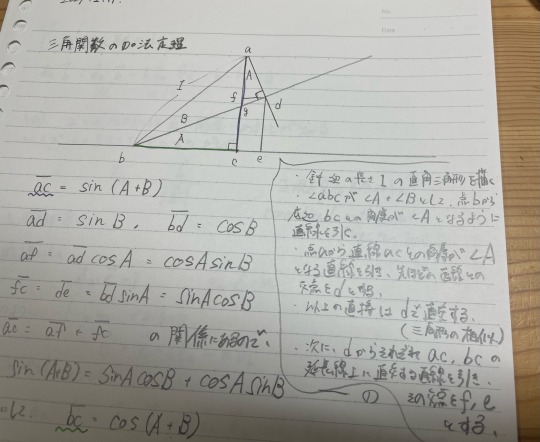 三角関数の加法定理
a
I
A
f
d
g
B
A
b
c
e
ac = sin (A+B)
ad = sin B, bd = cos B
af = ad cos A = cosA sinB
fc = de = bd sinA = sinA cosB
ac = af + fc の関係にあるので
sin(A+B) = sinA cosB + cosA sinB ①
bc = cos (A+B)
・斜辺の長さ1の直角三角形を描く
・∠abcが∠A+∠Bとし、点bから
底辺bcとの角度が∠Aとなるように
直線を引く。
・点aから直線acとの角度が∠A
となる直線を引き、先ほどの直線との
交点をdとする。
・以上の直線はdで直交する。
(三角形の相似)
・次に、dからそれぞれac, bcの
延長線上に直交する直線を引き、
その交点をf, e
とする。